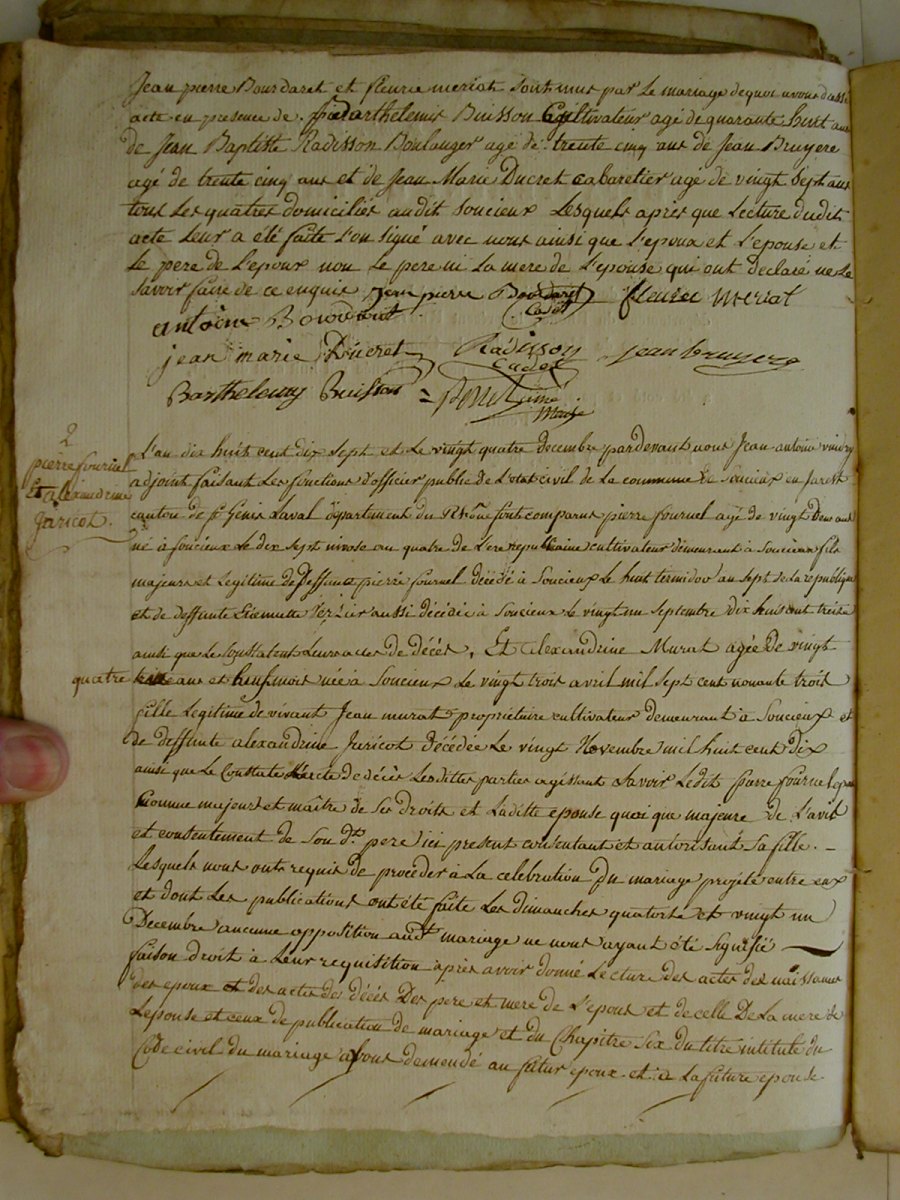 Jean pierre Bourdaret et fleurie meriat sont unis par le mariage de quoi avons dressé
acte en presence de Barthelemis Buisson Cultivateur agé de quarante huit ans
de Jean Baptiste Radisson Boulanger agé de trente cinq ans de Jean Bruyere
agé de trente cinq ans et de Jean Marie Ducret Cabaretier agé de vingt sept ans
tous les quatres domiciliés audit soucieux Lesquels apres que lecture dudit
acte leur a été faite l'on signé avec nous ainsi que l'epoux et l'epouse et
le pere de l'epoux non le pere ni la mere de l'epouse qui ont declaré ne le
savoir faire de ce enquis Jean pierre Bourdaret fleurie meriat
Cadet
antoine Bourdaret
jean marie Ducret Radisson jean bruyere
Cadet
Barthelemy Buisson
Maire
2
pierre fournel
Et alexandrine
Jaricot.
L'an dix huit cent dix sept et le vingt quatre decembre pardevant nous Jean antoine
adjoint faisant les fonctions d'officier public de L'etat civil de la commune de Soucieux en Jarest
canton de st Genis Laval département du Rhône sont comparus pierre fournel agé de vingt deux ans
né à soucieux Le dix sept nivose an quatre de L'ere republicaine cultivateur demeurant à Soucieux fils
majeur et Legitime de deffunt pierre fournel décédé à Soucieux Le huit termidor an sept de La republique
et de deffunte Etiennette Verzier aussi décédée à Soucieux Le vingt un septembre dix huit cent treize
ainsi que le Constatent Leurs actes de décès, Et Alexandrine Murat agée de vingt
quatre ans et huit mois née à Soucieux Le vingt trois avril mil sept cent nonante trois
fille Legitime de vivant Jean murat propriétaire cultivateur demeurant à Soucieux et
de deffunte alexandrine Jaricot décédée Le vingt Novembre mil huit cent dix
ainsi que le Constate l'acte de décès Lesdittes parties agissant Savoir Ledit pierre fournel
Comme majeur et maître de ses droits et Laditte epouse quoi que majeure de L'avis
et contentement de Son dt pere ici present consentant et autorisant Sa fille. –
Lesquels nous ont requis de procéder à La celebration du mariage projeté entre eux
et dont Les publications ont été faite Les dimanches quatorse et vingt un
Decembre aucunne opposition audt mariage ne nous ayant été signifié
faison droit à Leur requisition après avoir donné Lecture des actes des naissances
des epoux et des actes des décés Des pere et mere de L'epoux et de celle De La mere de
Lepouse et ceux de publication de mariage et du Chapitre Six du titre intitule du
Code civil du mariage avons demandé au futur epoux et a La future epouse